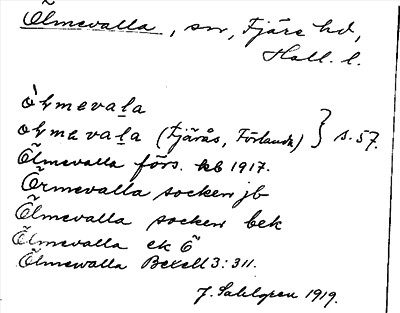 Ölmevalla, sn, Fjäre hd,
Hall. l.
òɥmevaḻa
oɥmevaḻa (Fjärås, Förlanda) } s. 57.
Ölmevalla förs. kb 1917.
Örmevalla socken jb
Ölmevalla socken bek
Ölmevalla ek 6
Ölmewalla Bexell 3: 311.
J. Sahlgren 1919.